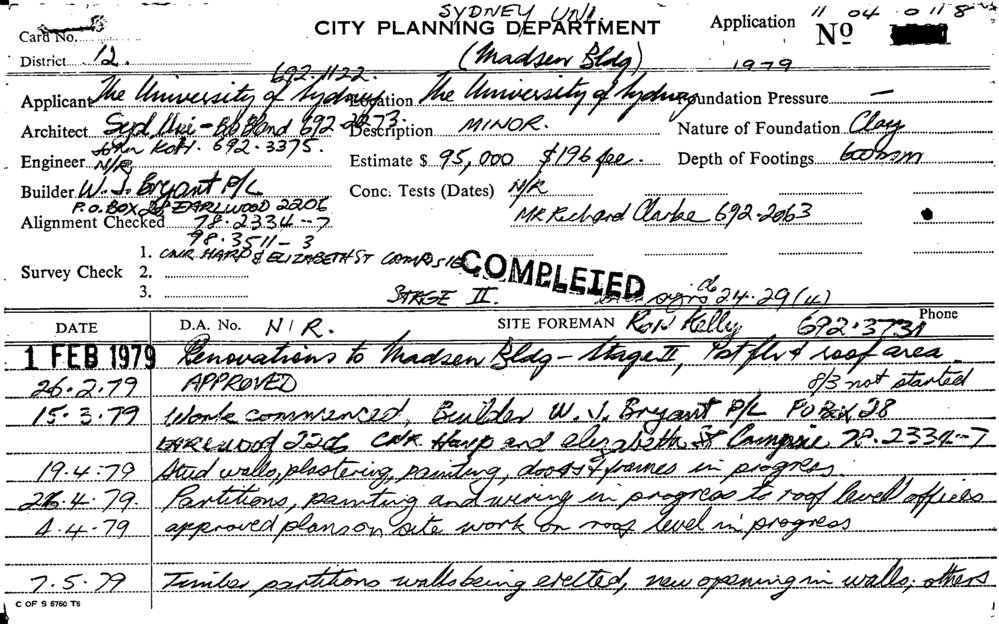 SYDNEY UNI.
CITY PLANNING DEPARTMENT
Application No 11 04 0118
Card No.
District 12. (Madsen Bldg) 1979
692.1122.
Applicant The University of Sydney Location The University of Sydney Foundation Pressure —
Architect Syd Uni - 692 2273. Description MINOR. Nature of Foundation Clay
John Kott. 692.3375.
Engineer N/R Estimate $ 95,000 $196 fee. Depth of Footings 600mm
Builder W. J. Bryant P/L Conc. Tests (Dates) N/R
P.O. BOX 28 EARLWOOD 2206 Mr Richard Clarke 692-2063
Alignment Checked 78.2334-7
98.3511-3
1. CNR HARP & ELIZABETH ST CAMPSIE COMPLETED
Survey Check 2.
3. STAGE II. 24.29(4)
DATE D.A. No. N/R. SITE FOREMAN Ron Kelly 692.3731 Phone
1 FEB 1979 Renovations to Madsen Bldg - Stage II, 1st flr & roof area
26.2.79 APPROVED 8/3 not started
15.3.79 Work commenced. Builder W. J. Bryant P/L PO Box 28
EARLWOOD 2206 CNR Harp and Elizabeth St Campsie 78.2334-7
19.4.79 Stud walls, plastering, painting, doors & frames in progress.
26.4.79. Partitions, painting and wiring in progress to roof level offices
4.4.79 approved plans on site work on roof level in progress
7.5.79 Timber partitions walls being erected, new opening in walls, others
C OF S 6760 T6